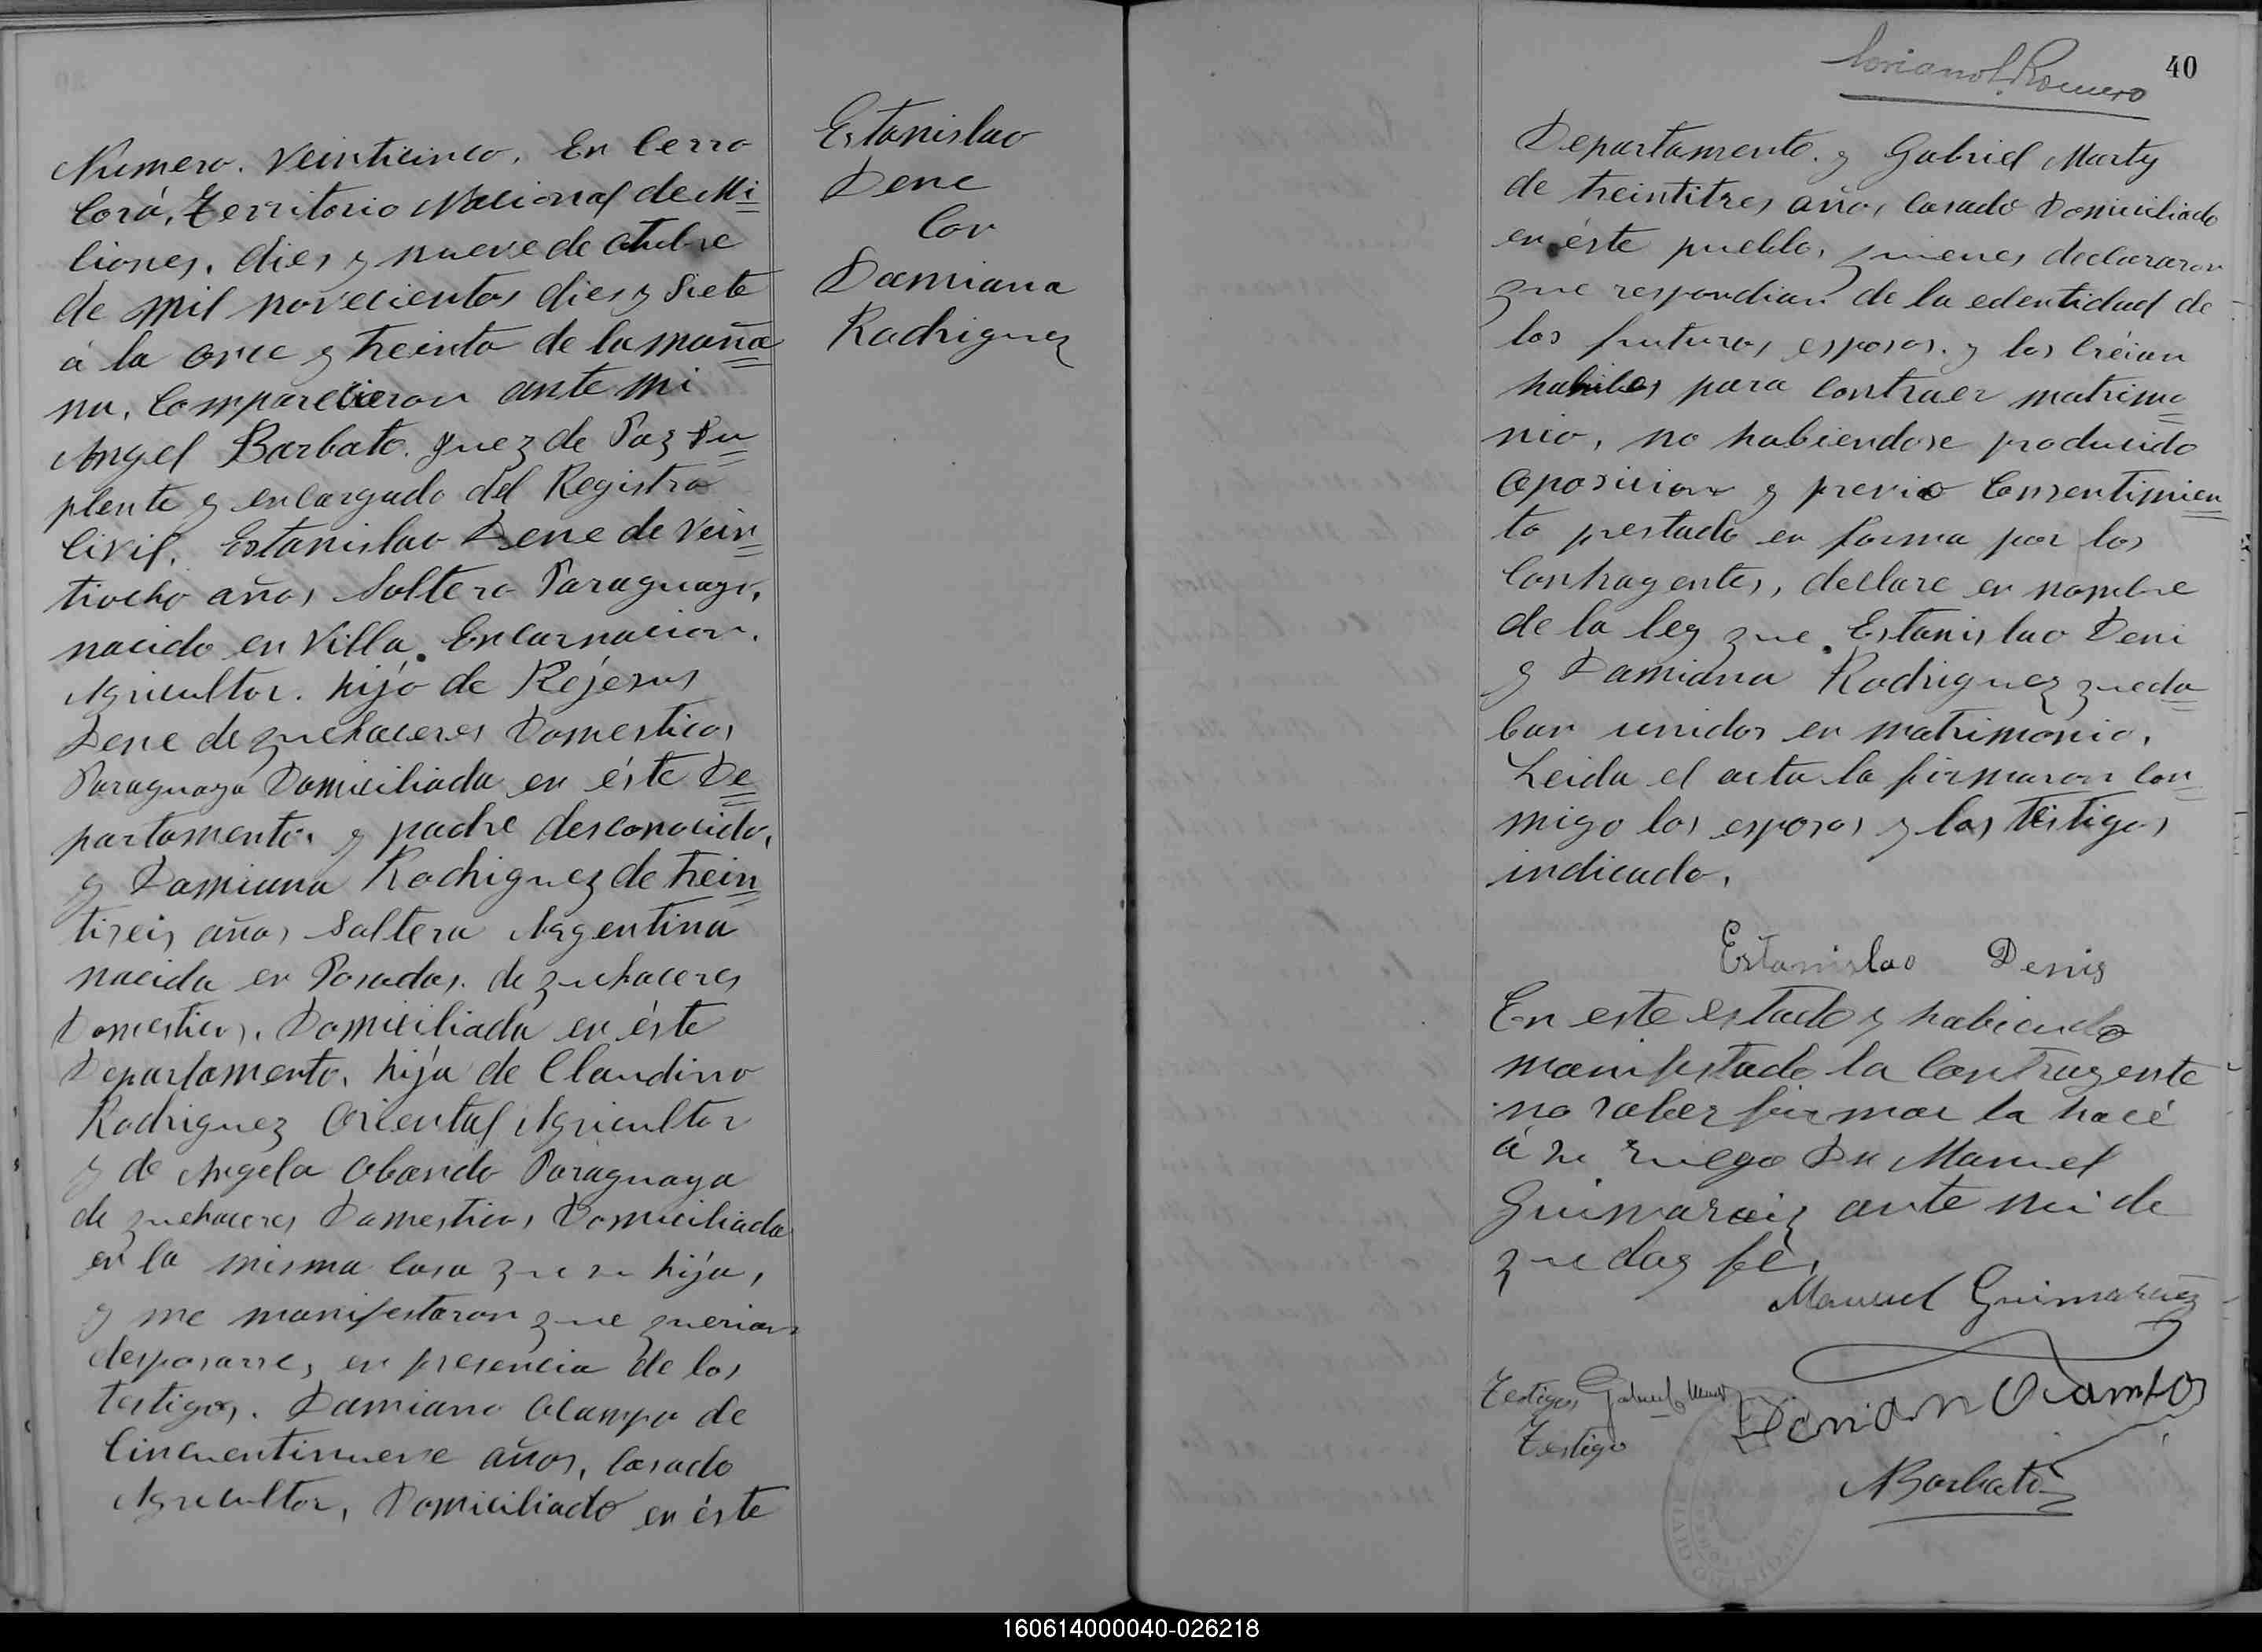 Numero. Veinticinco. En Cerro
Corá, Territorio Nacional de Mi=
ciones, dies y nueve de Otubre
de mil novecientos dies y siete
á la once y treinta de la maña=
na, Comparecieron ante mi
Angel Barbato. Juez de Paz Su=
plente y encargado del Registro
Civil. Estanislao Dene de vein=
tiocho años Soltero Paraguayo,
nacido en Villa Encarnacion.
Agricultor. hijo de Rejesus
Dene de quehaceres Domesticos
Paraguaya Domiciliada en éste De=
partamento. y padre desconocido,
y Damiana Rodriguez de trein=
tiseis años Soltera Argentina
nacida en Posadas. de quehaceres
Domesticos. Domiciliada en éste
Departamento. hija de Claudino
Rodriguez Oriental Agricultor
y de Angela Obando Paraguaya
de quehaceres Domesticos Domiciliada
en la misma casa que su hija,
y me manifestaron que querian
desposarse, en presencia de los
testigos. Damiano Ocampo de
Cincuentinueve años, Casado
Agricultor, Domiciliado en éste
Estanislao
Dene
Con
Damiana
Rodriguez
Romero
40
Departamento. y Gabriel Marty
de treintitres años, Casado Domiciliado
en éste pueblo, quienes declararon
que respondian de la edentidad de
los futuros esposos. y los Créian
habiles para contraer matrimo=
nio, no habiendose producido
oposicion y previo Consentimien=
to prestado en forma por los
Contrayentes, declare en nombre
de la ley que. Estanislao Deni
y Damiana Rodriguez queda=
ban unidos en matrimonio.
Leida el acta la firmaron con=
migo los esposos y los testigos
indicado.
Estanislao Denis
En este estado y habiendo
manifestado la Contrayente
no saber firmar la hacé
á su ruego Dn Manuel
Guimaraiz ante mi de
que doy fé,
Manuel Guimaraez
Testigos Gabriel Marty
Damian Ocampos
Testigo
ABarbato
160614000040-026218